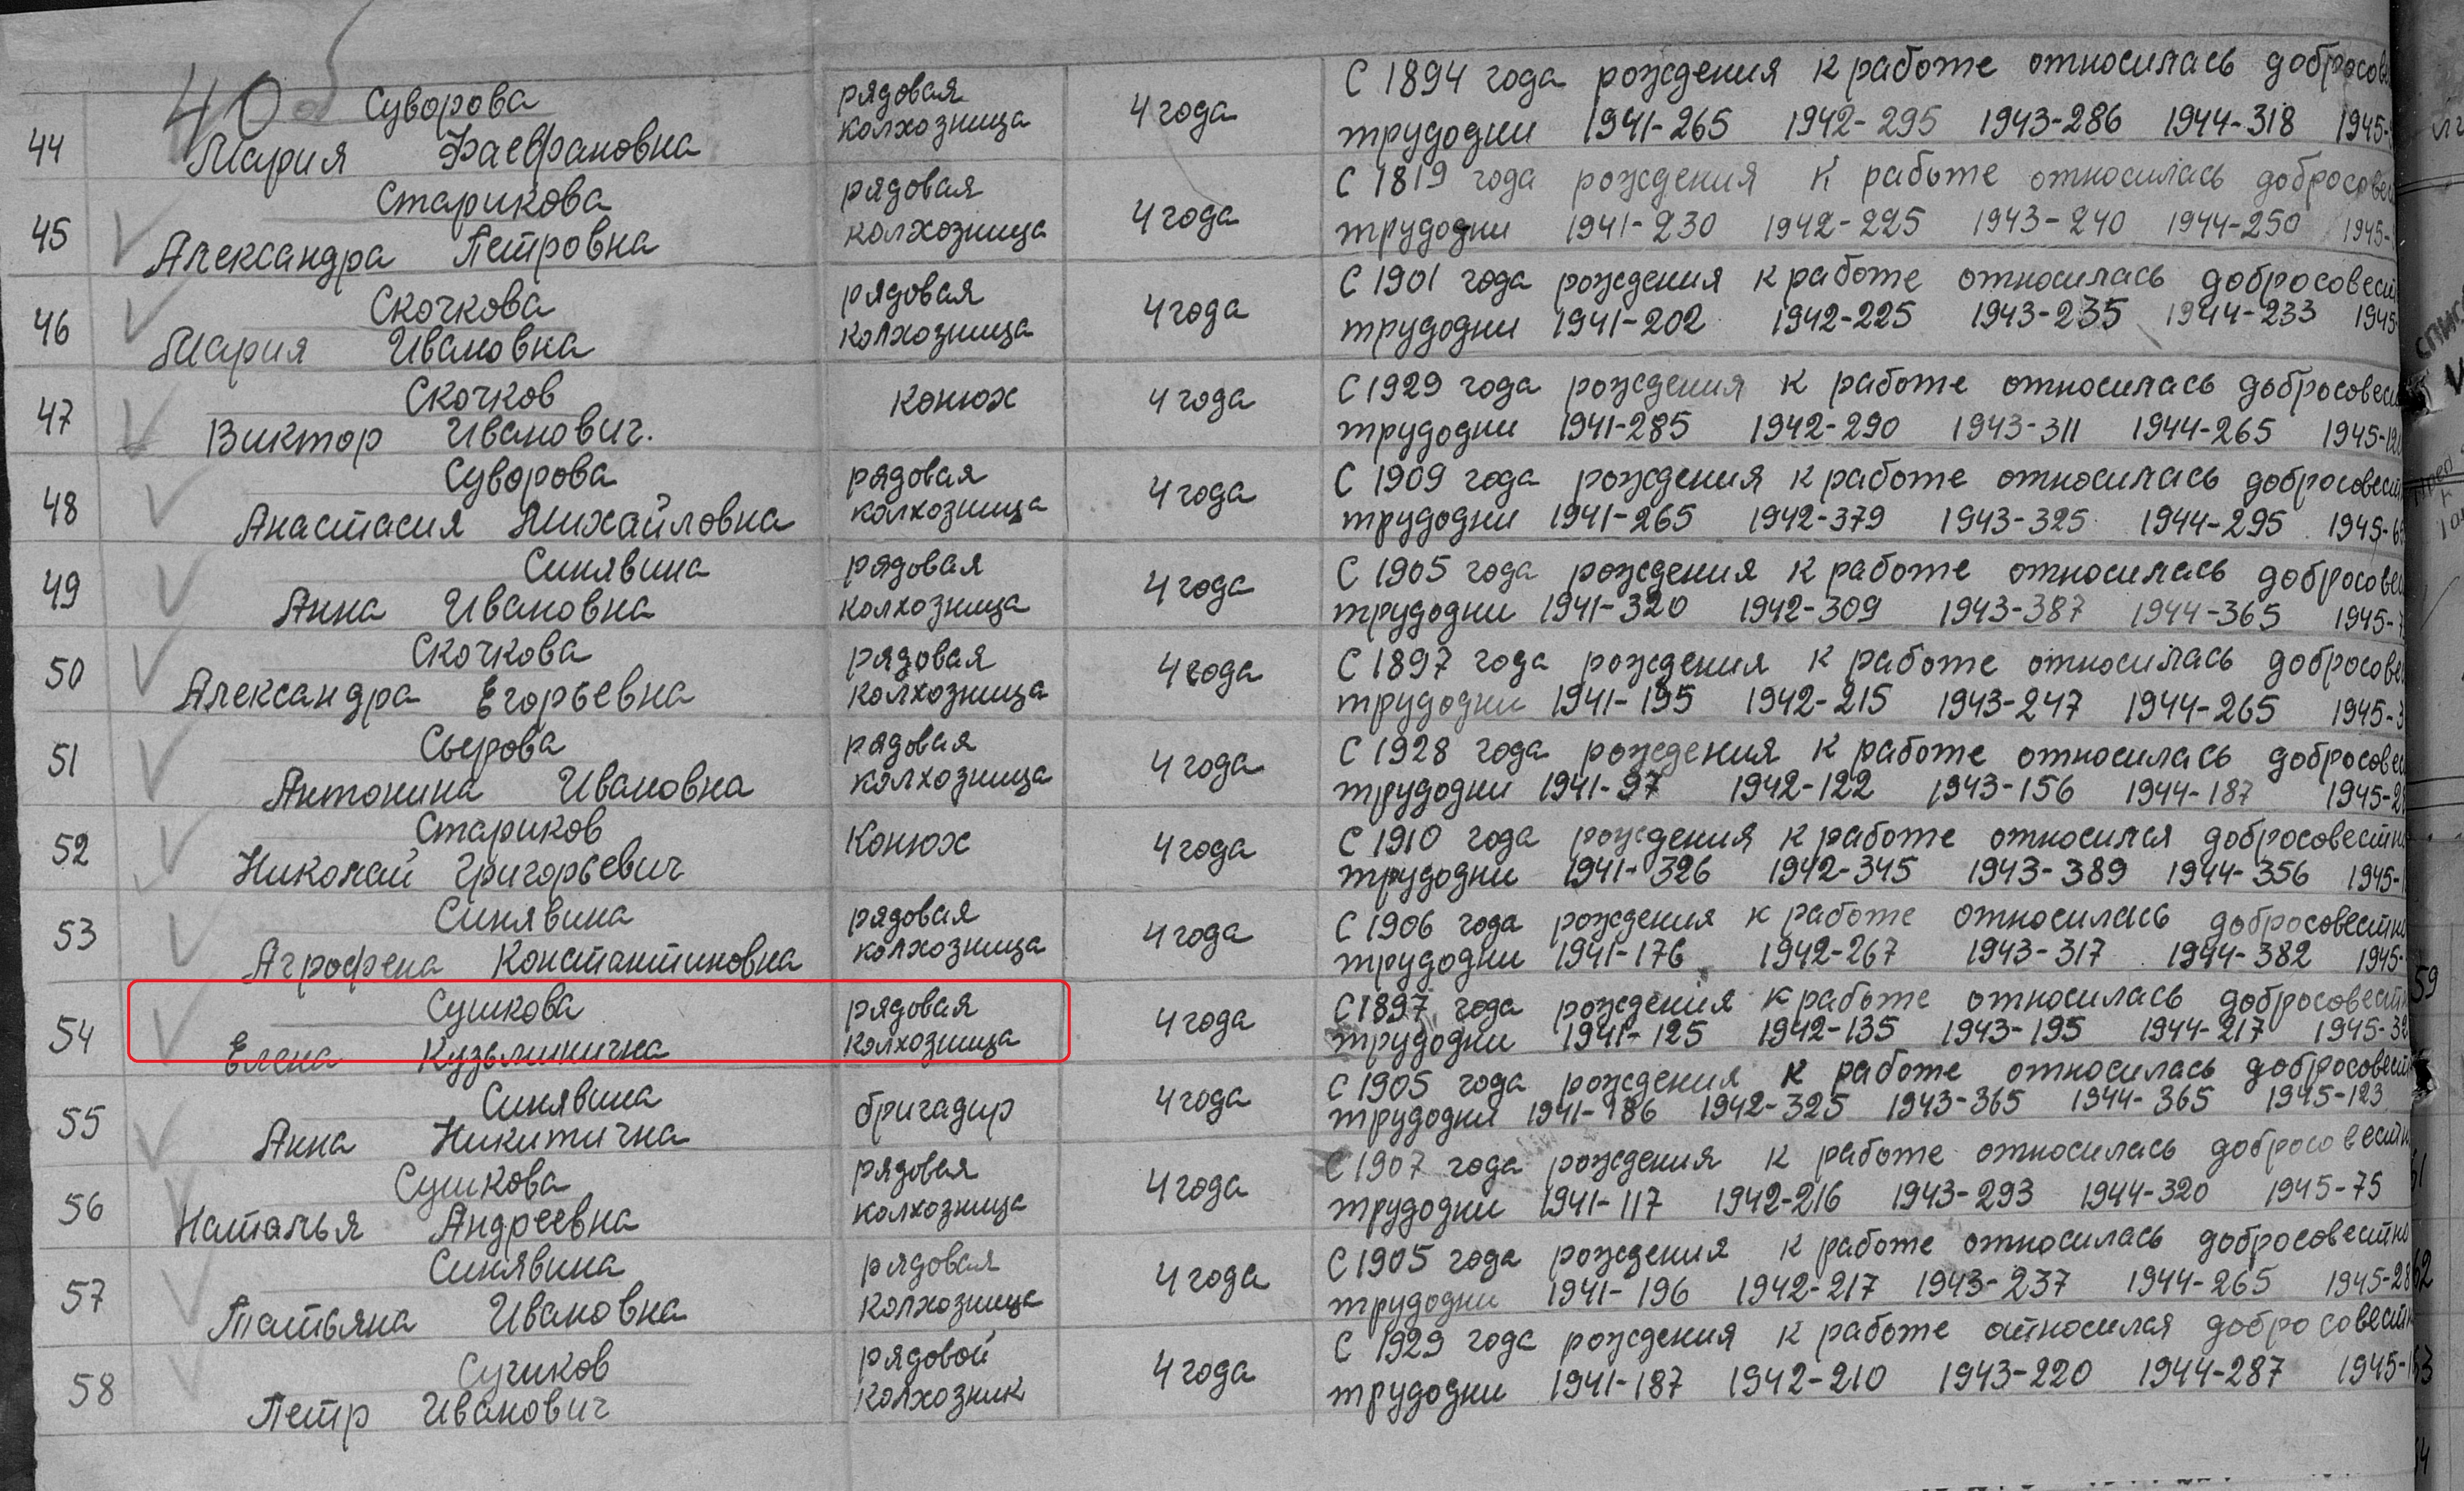 40об
44 Суворова рядовая колхозница 4 года С 1894 года рождения к работе относилась добросов
Мария трудодни 1941-265 1942-295 1943-286 1944-318 1945-
45 Старикова рядовая колхозница 4 года С 1819 года рождения к работе относилась добросовес
Александра Петровна трудодни 1941-230 1942-225 1943-240 1944-250 1945-
46 Скочкова рядовая колхозница 4 года С 1901 года рождения к работе относилась добросовест
Мария Ивановна трудодни 1941-202 1942-225 1943-235 1944-233 1945-
47 Скочков конюх 4 года С 1929 года рождения к работе относилась добросовес
Виктор Иванович. трудодни 1941-285 1942-290 1943-311 1944-265 1945-
48 Суворова рядовая колхозница 4 года С 1909 года рождения к работе относилась добросовест
Анастасия Михайловна трудодни 1941-265 1942-379 1943-325 1944-295 1945-
49 Синявина рядовая колхозница 4 года С 1905 года рождения к работе относилась добросовес
Анна Ивановна трудодни 1941-320 1942-309 1943-387 1944-365 1945-
50 Скочкова рядовая колхозница 4 года С 1897 года рождения к работе относилась добросовес
Александра Егорьевна трудодни 1941-195 1942-215 1943-247 1944-265 1945-
51 Сьерова рядовая колхозница 4 года С 1928 года рождения к работе относилась добросовес
Антонина Ивановна трудодни 1941-97 1942-122 1943-156 1944-187 1945-
52 Стариков Конюх 4 года С 1910 года рождения к работе относился добросовестно
Николай Григорьевич трудодни 1941-326 1942-345 1943-389 1944-356 1945-
53 Синявина рядовая колхозница 4 года С 1906 года рождения к работе относилась добросовестно
Агрофена Константиновна трудодни 1941-176 1942-267 1943-317 1944-382 1945-
54 Сушкова рядовая колхозница 4 года С 1897 года рождения к работе относилась добросовестн
Елена Кузьминична трудодни 1941-125 1942-135 1943-195 1944-217 1945-
55 Синявина бригадир 4 года С 1905 года рождения к работе относилась добросовест
Анна Никитична трудодни 1941-186 1942-325 1943-365 1944-365 1945-123
56 Сушкова рядовая колхозница 4 года С 1907 года рождения к работе относилась добросовестн
Наталья Андреевна трудодни 1941-117 1942-216 1943-293 1944-320 1945-75
57 Синявина рядовая колхозница 4 года С 1905 года рождения к работе относилась добросовестно
Татьяна Ивановна трудодни 1941-196 1942-217 1943-237 1944-265 1945-28
58 Сучков рядовой колхозник 4 года С 1929 года рождения к работе относился добросовестн
Петр Иванович трудодни 1941-187 1942-210 1943-220 1944-287 1945-
59